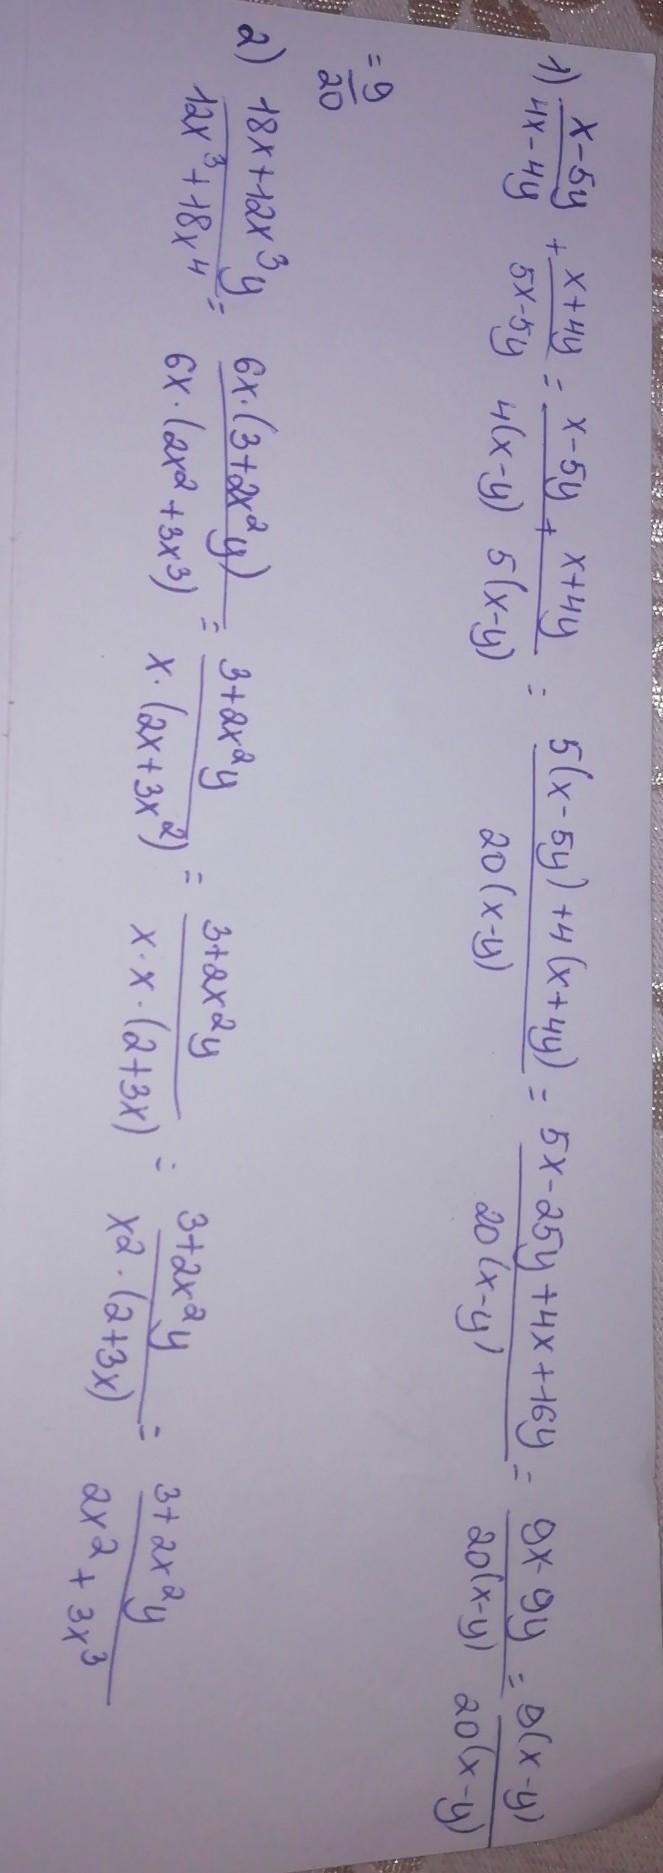 1) \frac{x-5y}{4x-4y} + \frac{x+4y}{5x-5y} = \frac{x-5y}{4(x-y)} + \frac{x+4y}{5(x-y)} = \frac{5(x-5y)+4(x+4y)}{20(x-y)} = \frac{5x-25y+4x+16y}{20(x-y)} = \frac{9x-9y}{20(x-y)} = \frac{9(x-y)}{20(x-y)}
= \frac{9}{20}
2) \frac{18x+12x^3y}{12x^3+18x^4} = \frac{6x·(3+2x^2y)}{6x·(2x^2+3x^3)} = \frac{3+2x^2y}{x·(2x+3x^2)} = \frac{3+2x^2y}{x·x·(2+3x)} = \frac{3+2x^2y}{x^2·(2+3x)} = \frac{3+2x^2y}{2x^2+3x^3}